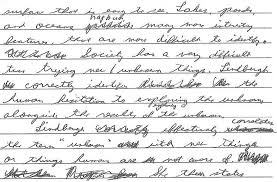 surface that is easy to see. Lakes, ponds
and oceans many more intricate
features, that are more difficult to identify.
Society has a very difficult
time trying new / unknown things. Lindbergh
correctly identifies the
human hesitation to exploring the unknown
alongside the results of the unknown
Lindbergh effectively correlates
the term "unknown" with new things
or things human are not aware of
She then states